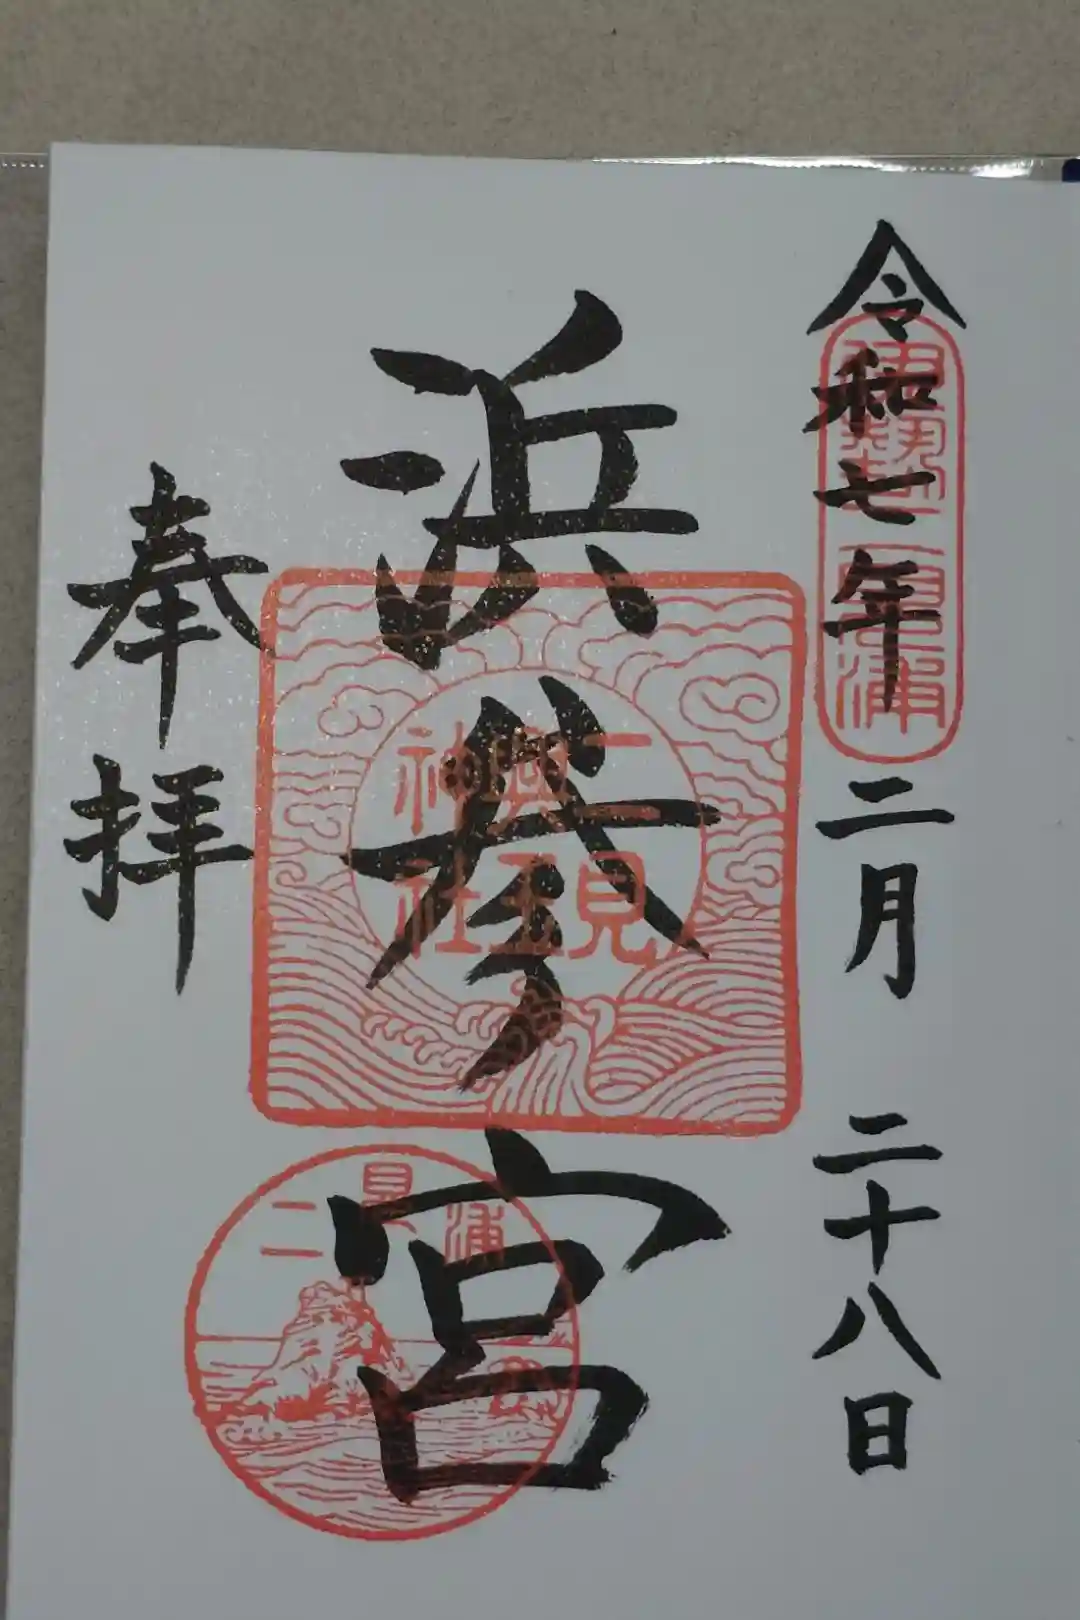 令和七年二月二十八日
伊勢二見浦
浜参宮
二見
興玉
神社
二見浦
奉拝